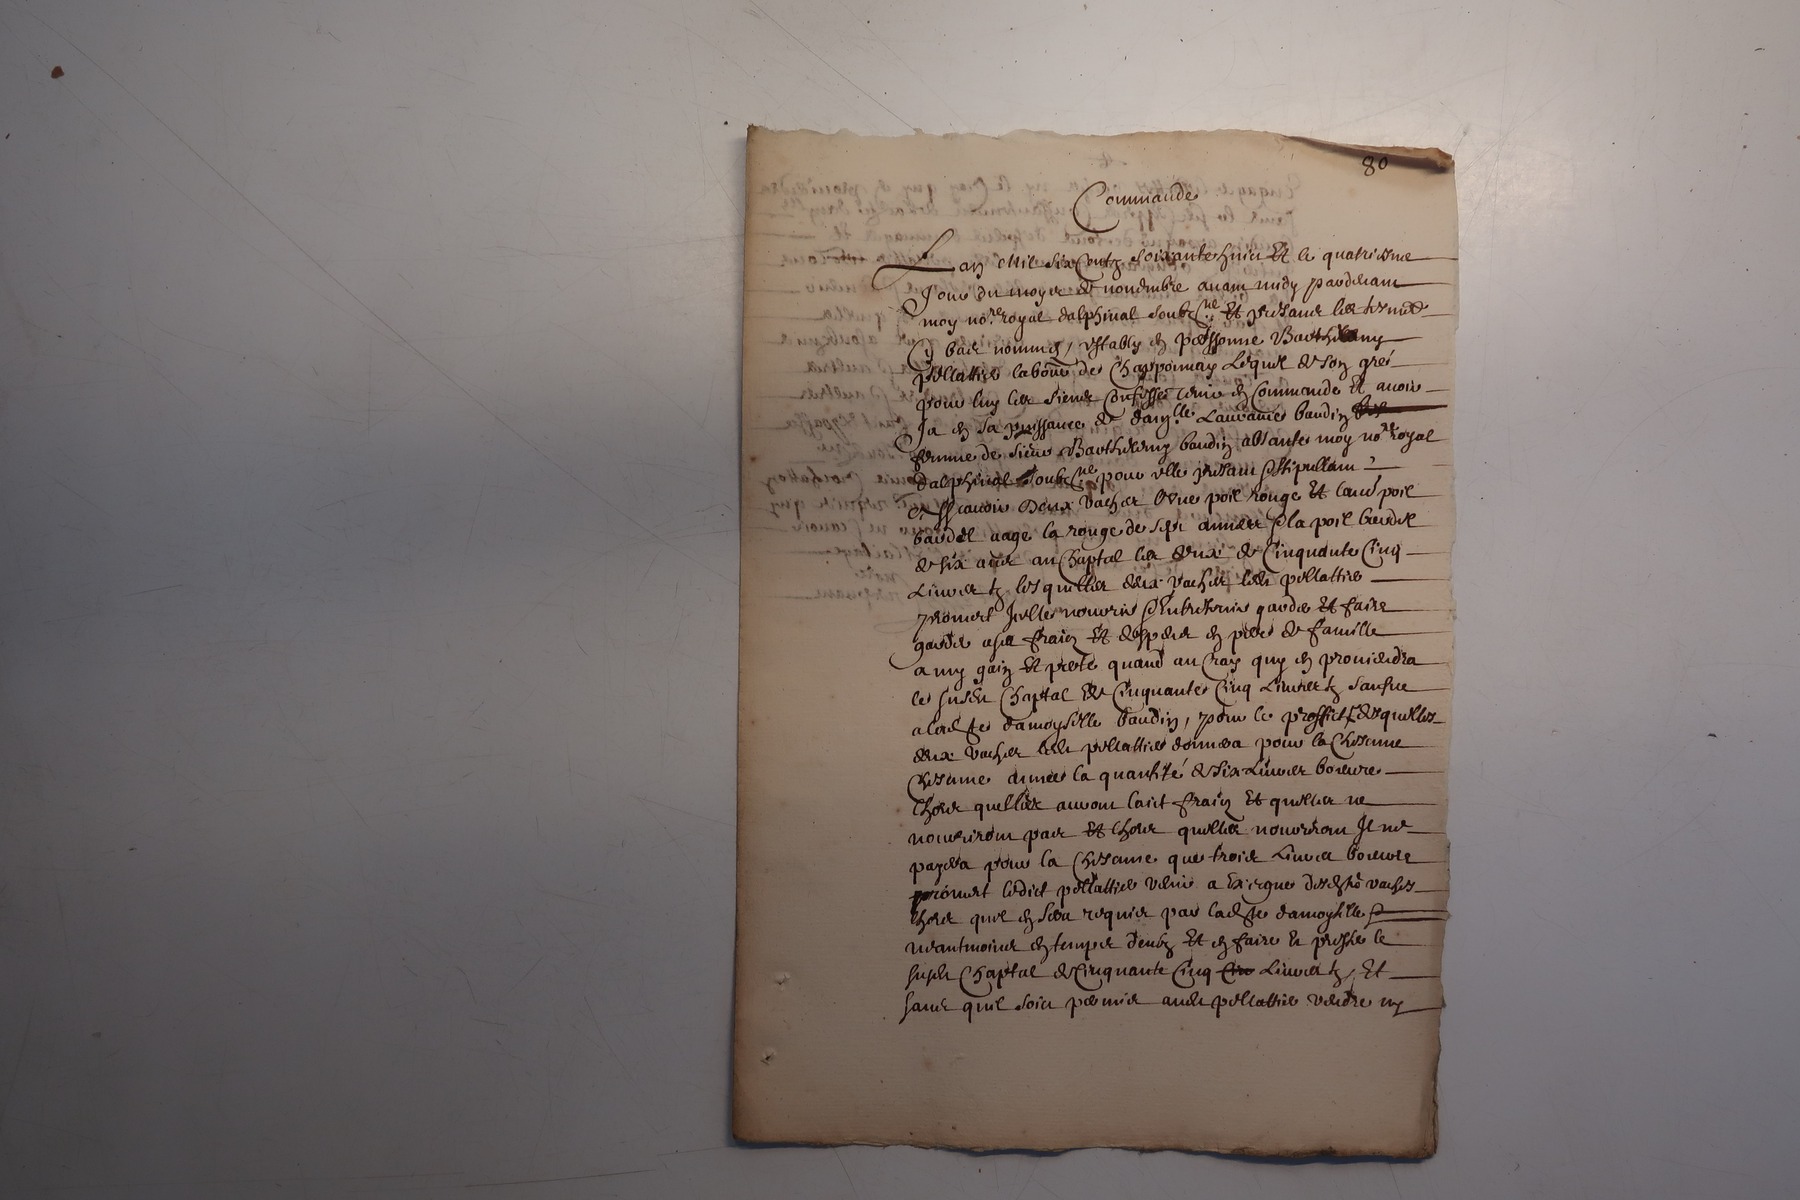 80
Commande
Lan Mil six Centz soixante huict Et le quatriesme
Jour du moys de novembre avant midy pardevant
moy nore royal dalphinal soubzne Et presant les tesmoz
Cy bas nommes, estably en personne Barthelemy
pellattier labour de Chapponnay Lequel de son gré
pour luy les siens Confesse tenir en Commande Et avoir
Ja en sa puissance de damlle Laurance baudin
femme de sieur Barthelemy baudin absante moy nore royal
dalphinal soubzne pour elle presant stipullant
Et scavoir deux vaches lune poil rouge Et laut poil
bardel aage la rouge de sept annees la poil bardel
de six ans au Chaptal les deux de Cinquante Cinq
Livres tz lesquelles deux vaches ledt pellattier
promet Jcelles nourrir Entretenir garder Et faire
garder a ses fraiz Et despens en pere de famille
a my gain Et perte quand au Croy quy en proviendra
le susdt Chaptal de Cinquante Cinq Livres tz saufve
a ladte damoyselle baudin, pour le proffict desquelles
deux vaches ledt pellattier donnera pour la Chescune
Chescune annee la quantité de six Livres beurre
lhors quelles auront laict fraiz Et quelles ne
nourriront pas Et lhors quelles nourriront Jl ne
payera pour la Chescune que trois Livres beurre
promet ledict pellattier venir a Exegue desdtes vaches
lhors quil en sera requis par ladte damoyselle
neantmoins en temps deub Et en faire
susdt Chaptal de Cinquante Cinq Livres tz, Et
sans quil soit permis audt pellattier vendre ny